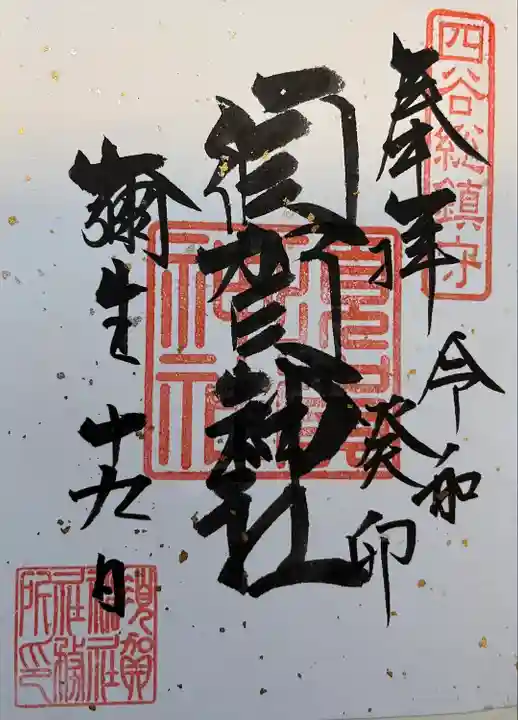 四谷総鎮守
奉拝
令和癸卯
須賀神社
須賀神社
彌生十九日
須賀神社社務所印